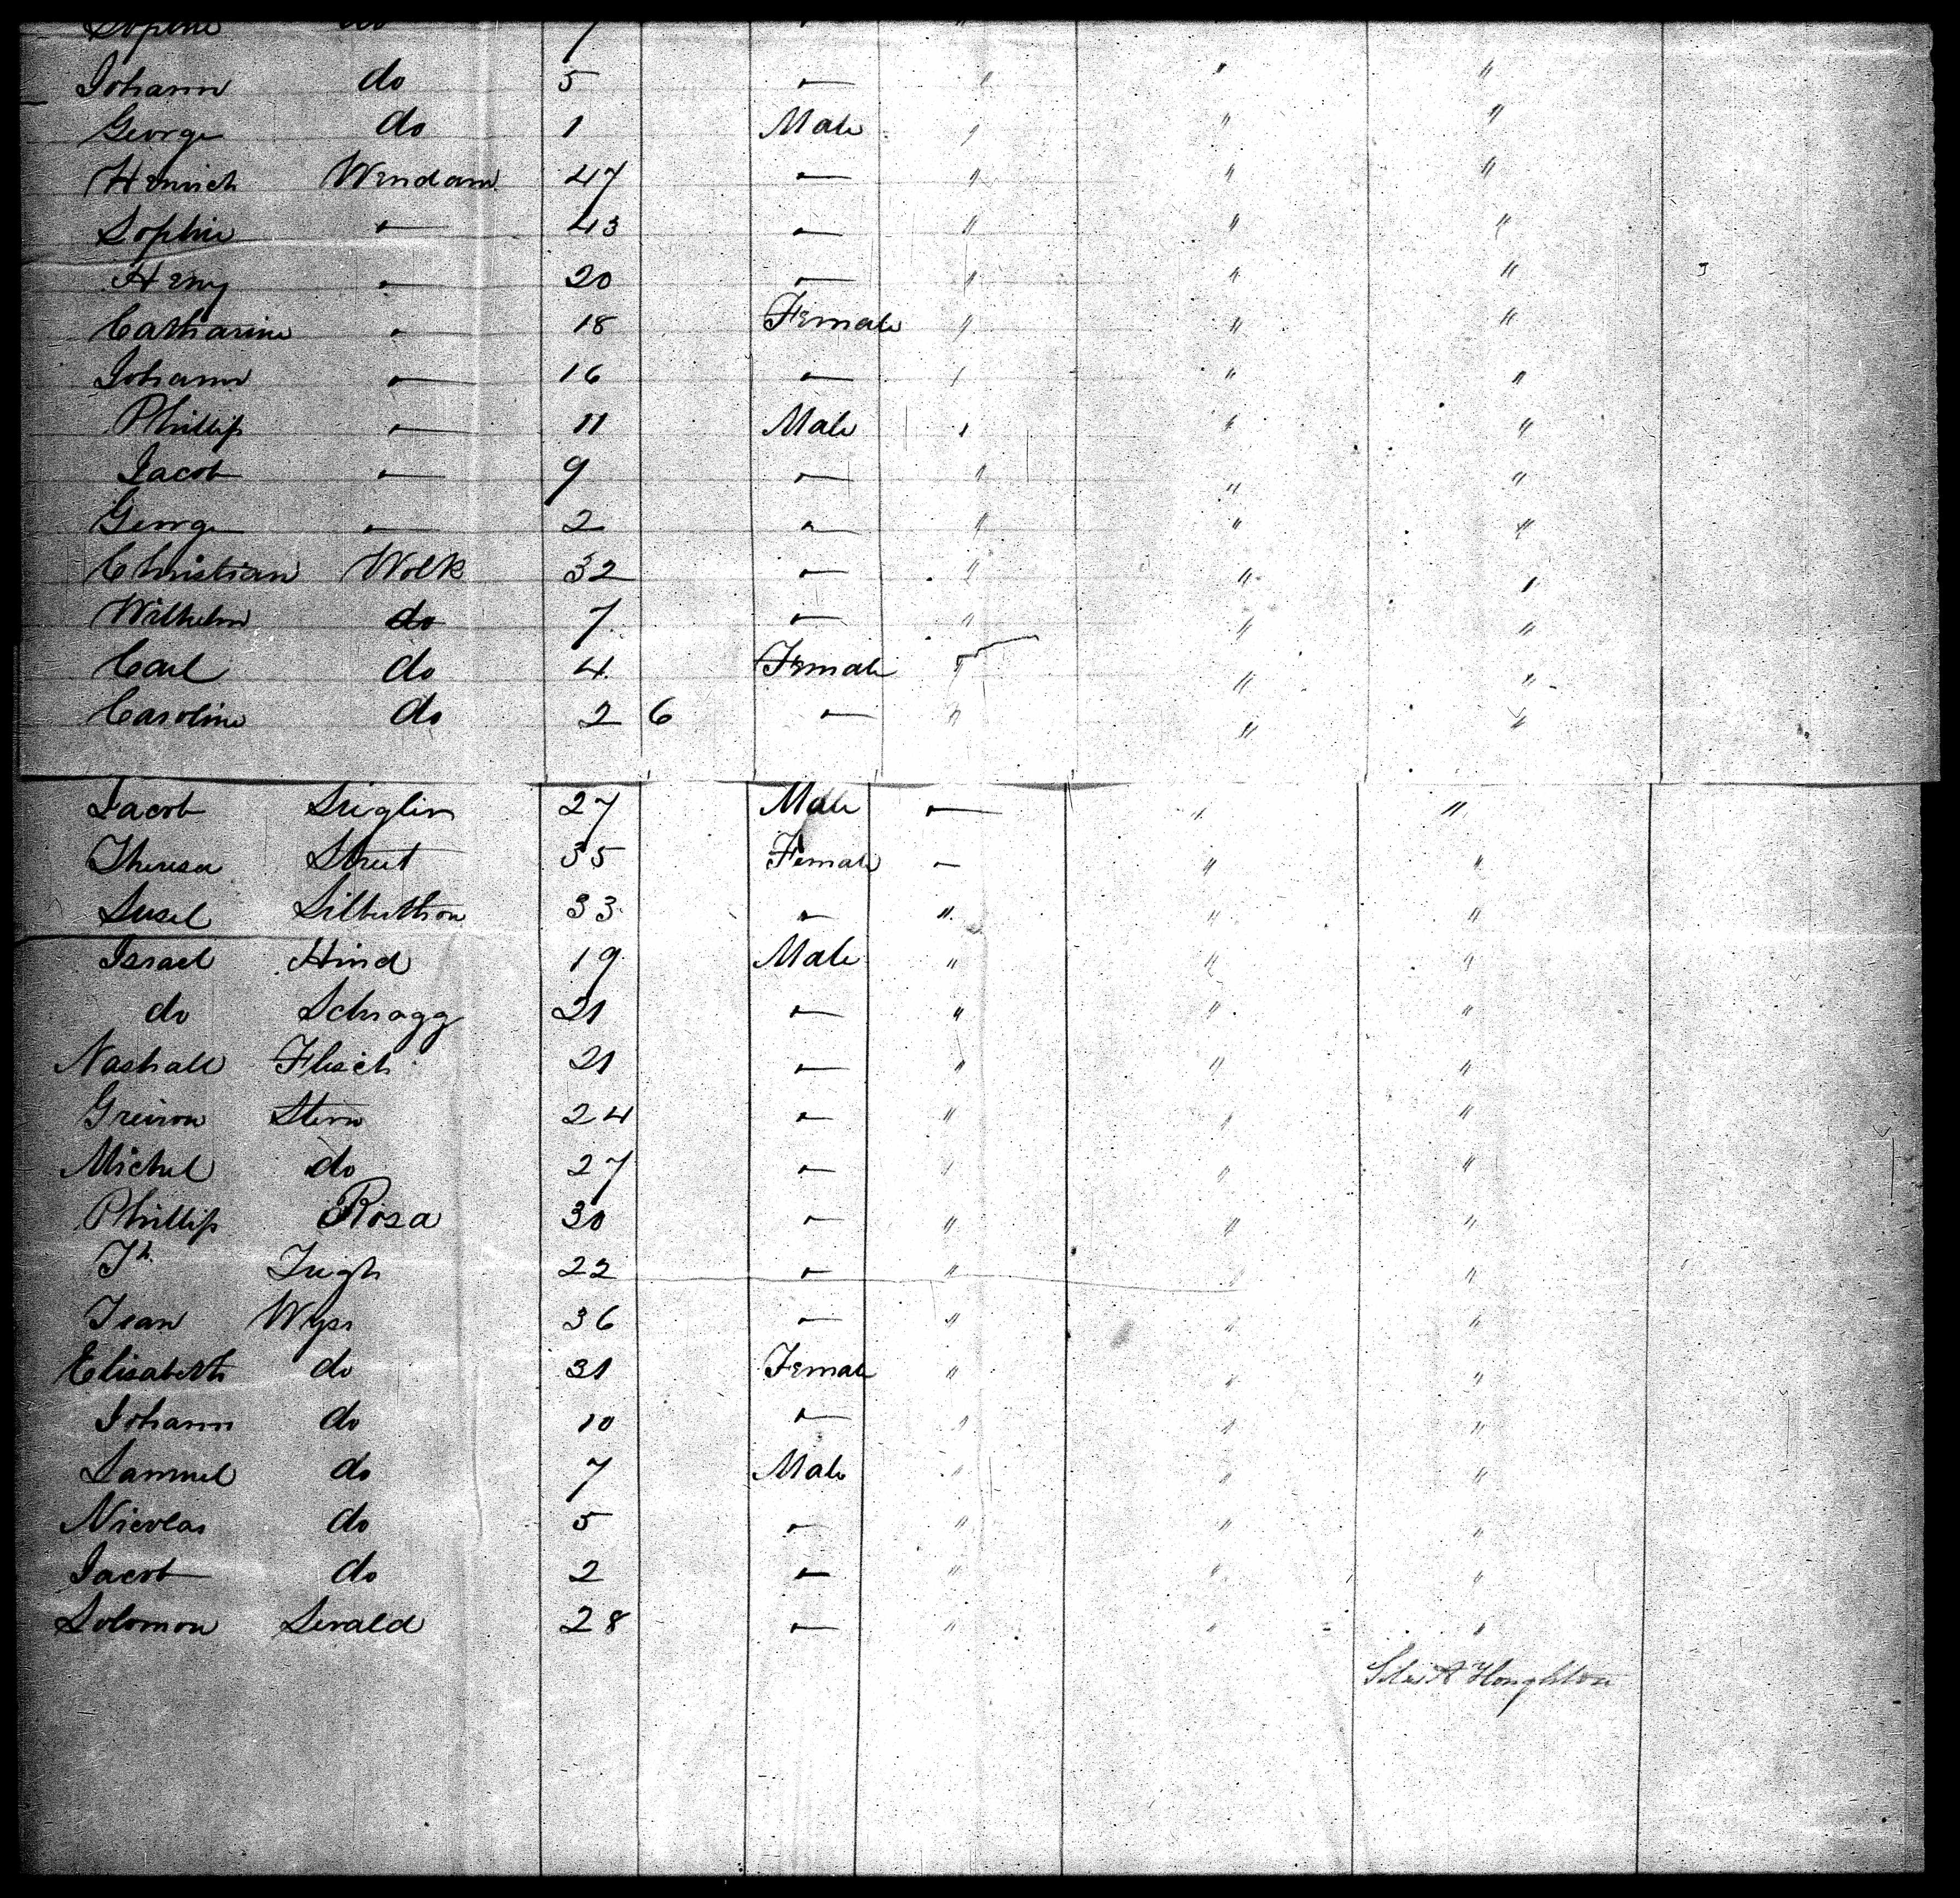 Sophie do 7 "
Johann do 5 — " " "
George do 1 Male " " "
Heinrich Wendam 47 — " " "
Sophie — 43 — " " "
Henry — 20 — " " "
Catharine — 18 Female " " "
Johann — 16 — " " "
Phillip — 11 Male " " "
Jacob — 9 — " " "
George — 2 — " " "
Christian Wolk 32 — " " "
Wilhelm do 7 — " " "
Carl do 4 Female " " "
Caroline do 2 6 — " " "
Jacob 27 Male — " "
Theresa Street 35 Female — " "
Susel Silberthon 33 — " " "
Israel Hind 19 Male " " "
do Schragg 21 — " " "
Nashall Flesch 21 — " " "
Stern 24 — " " "
Michel do 27 — " " "
Phillip Rosa 30 — " " "
Jh. 22 — " " "
Jean Wyss 36 — " " "
Elisabeth do 31 Female " " "
Johann do 10 — " " "
Samuel do 7 Male " " "
Nicolas do 5 — " " "
Jacob do 2 — " " "
Solomon Serald 28 — " " "
Houghton